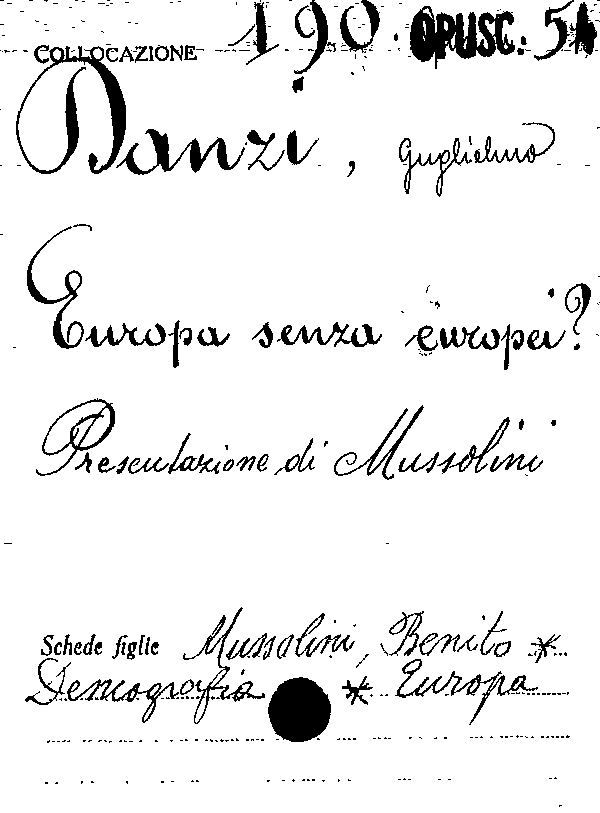 COLLOCAZIONE 190. OPUSC. 54
Danzi, Guglielmo
Europa senza europei?
Presentazione di Mussolini
Schede figlie Mussolini, Benito *
Demografia * Europa